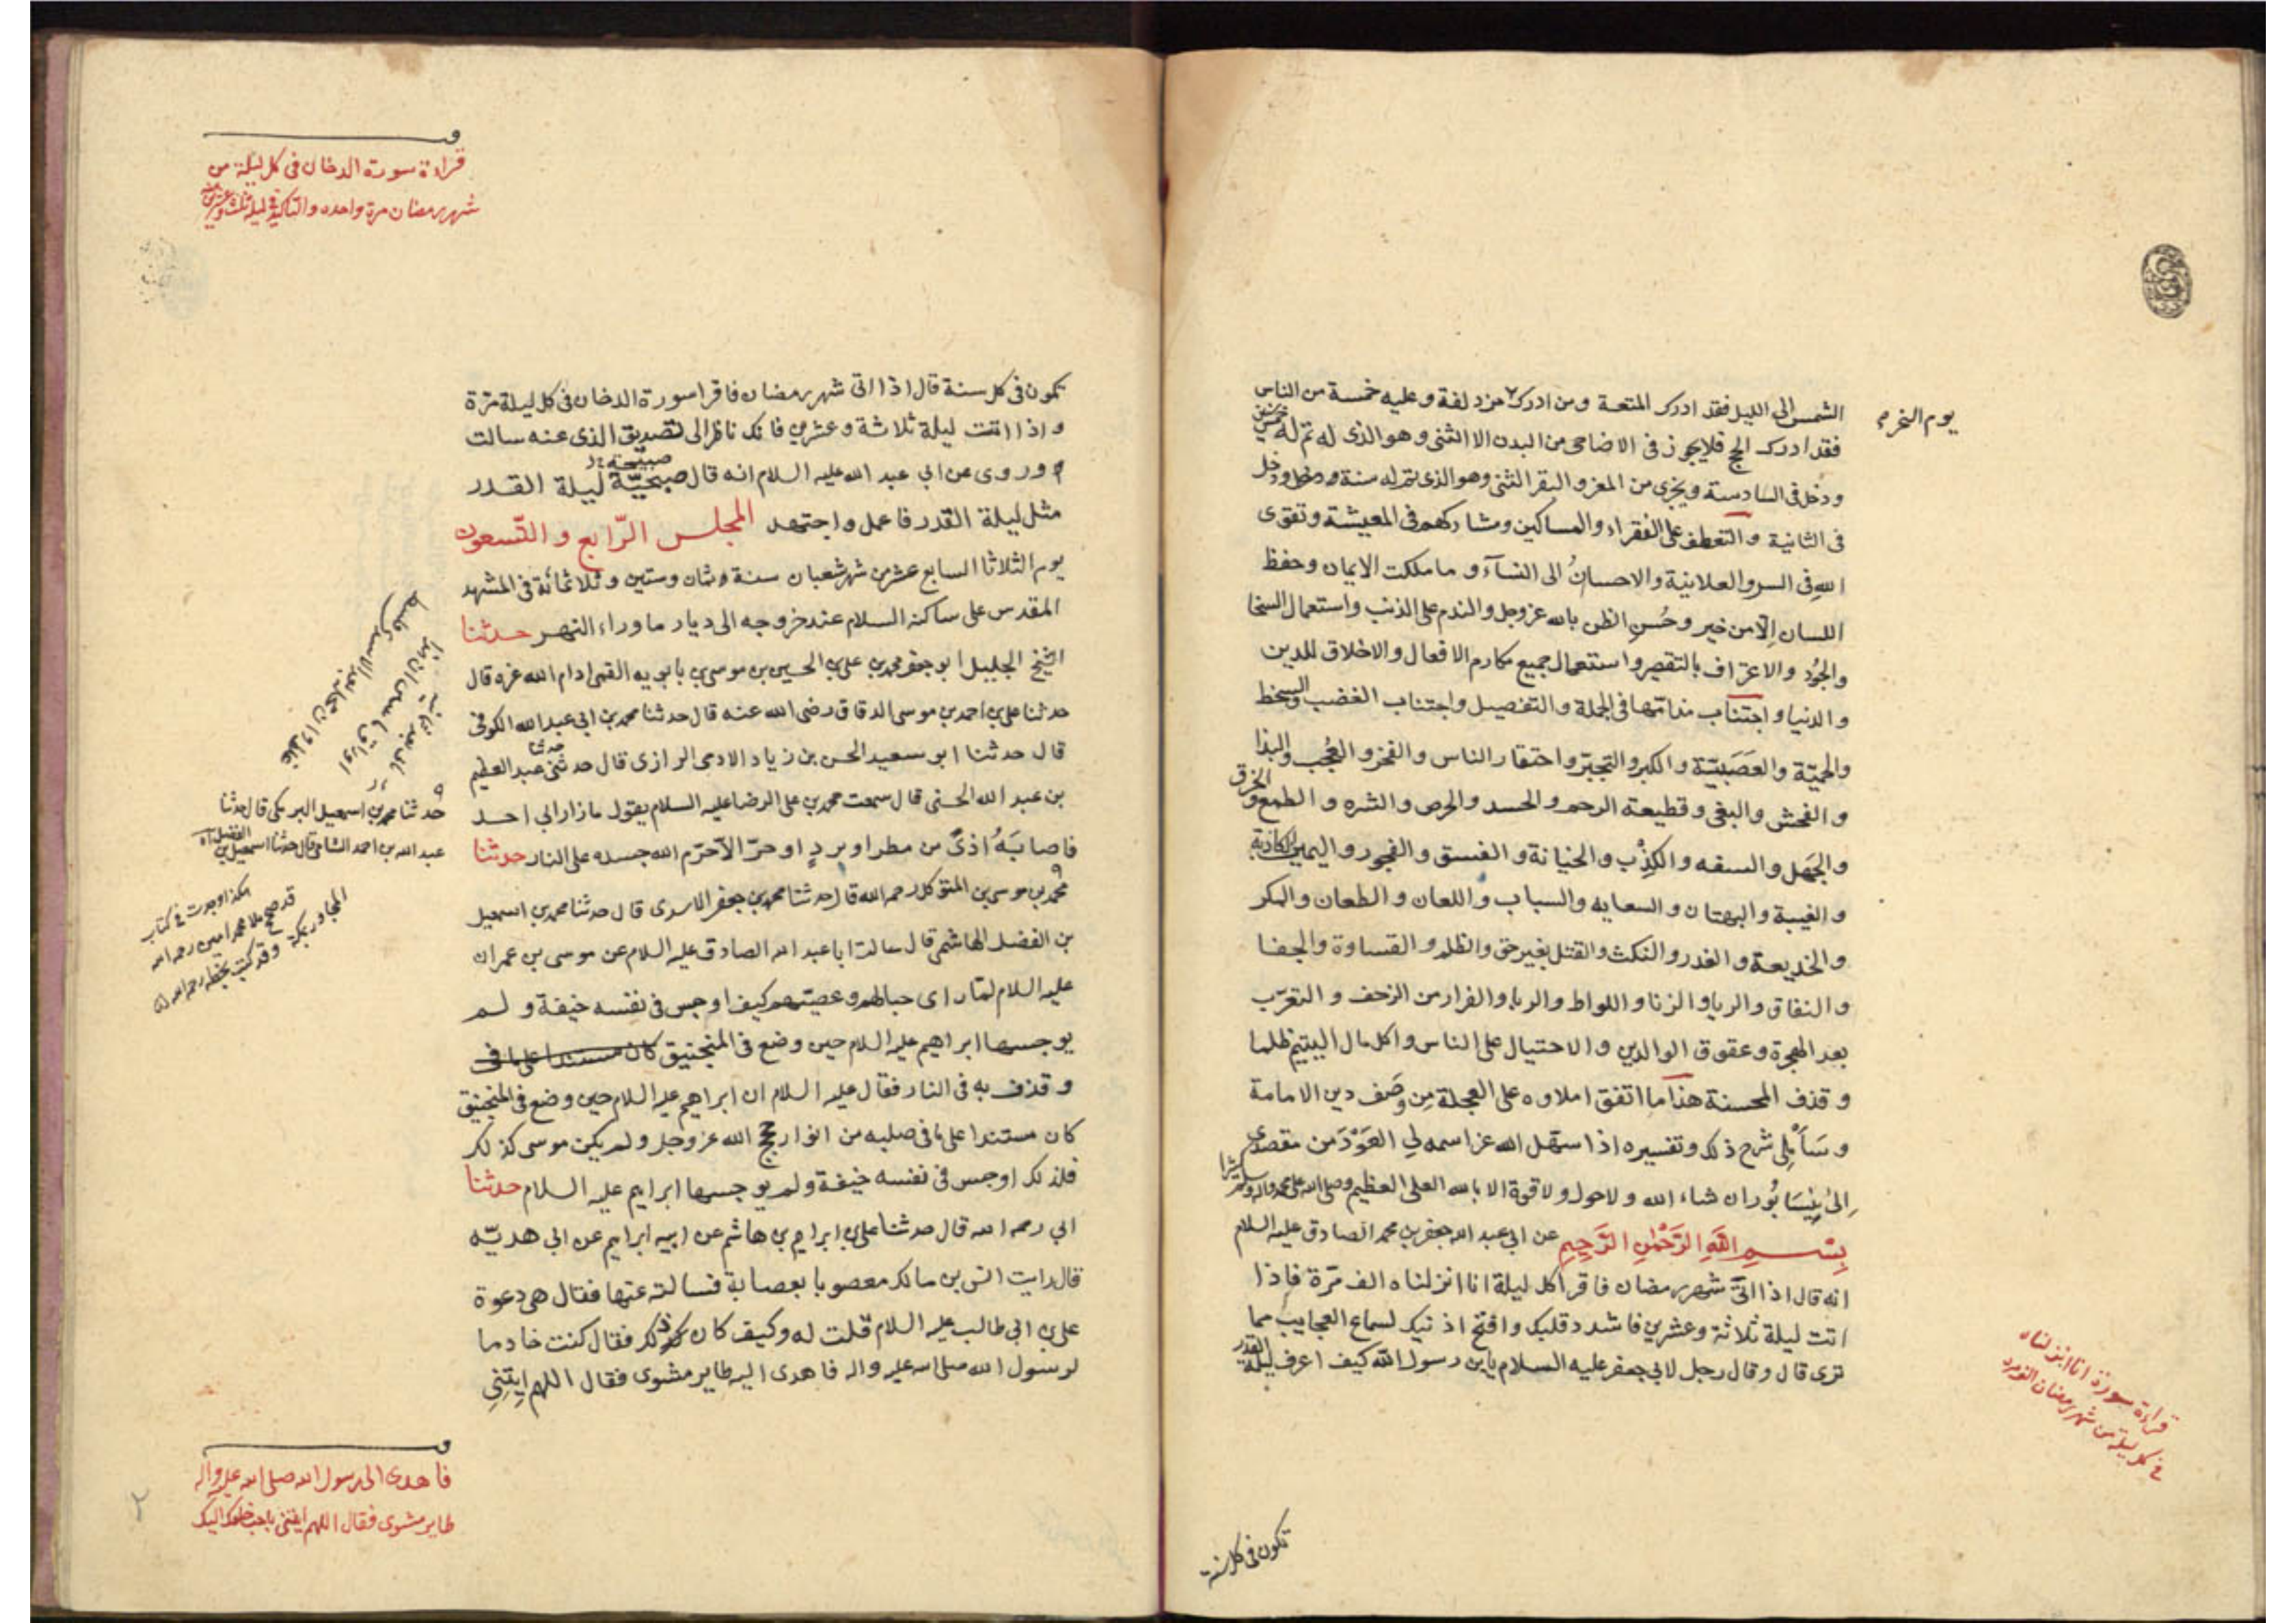 يوم النحر
الشمس الى الليل فقد ادرك المتعة ومن ادرك مزدلفة وعليه خمسة من الناس
فقد ادرك الحج فلا يجوز فى الاضاحى من البدن الا الثنى وهو الذى له تم له خمس سنين
ودخل فى السادسة ويجزى من المعز والبقر الثنى وهو الذى تم له سنة ودخل
فى الثانية والتعطف على الفقراء والمساكين ومشاركتهم فى المعيشة وتقوى
الله فى السر والعلانية والاحسانُ الى النسآء وما ملكت الايمان وحفظ
اللسان اِلّا من خير وحُسنِ الظن بالله عز وجل والندم على الذنب واستعمال السخا
والجُود والاعتراف بالتقصير واستعمال جميع مكارم الافعال والاخلاق للدين
والدنيا واجتناب مذامّها فى الجملة والتفصيل واجتناب الغضب والسخط
والحميّة والعَصَبيّة والكبر والتجبّر واحتقار الناس والفخر والعُجب والبذا
والفحش والبغى وقطيعة الرحم والحسد والحرص والشره والطمع والخرق
والجَهل والسفه والكِذْب والخيانة والفسق والفجور واليمين الكاذبة
والغيبة والبهتان والسعايه والسباب واللعان والطعان والمكر
والخديعة والغدر والنكث والقتل بغير حق والظلم والقساوة والجفا
والنفاق والريا والزنا واللواط والربا والفرار من الزحف والتعرّب
بعد الهجرة وعقوق الوالدين والاحتيال على الناس واكل مال اليتيم ظلما
وقذف المحسنة هذا ما اتفق املاوه على العجلة مِن وَصَف دين الامامة
وسَاُملِى شرح ذلك وتفسيره اذا سهّل الله عز اسمه لي العَوْدَ من مقصدى
اِلىٰ نِيْسَابُور ان شاء الله ولا حول ولا قوة الا بالله العلى العظيم وصلى الله على محمد واله وسلم كثيرا
بِسْــمِ اللَّهِ الرَّحْمٰنِ الرَّحِيمِ عن ابى عبد الله جعفر بن محمد الصادق عليه السلام
انه قال اذا اتىٰ شهر رمضان فاقرا كل ليلة انا انزلناه الف مَرّة فاذا
اتت ليلة ثلاثة وعشرين فاشدد قلبك وافتح اذنيك لسماع العجايب مما
ترى قال وقال رجل لابي جعفر عليه السلام يابن رسول الله كيف اعرف ليلة القدر
قراءة سورة انا انزلناه
فى كل ليلة من شهر رمضان الف مرة
تكون فى كل سنة
قراءة سورة الدخان فى كل ليلة من
شهر رمضان مرة واحده والتاكيد فى ليلة ثلث وعشرين
تكون فى كل سنة قال اذا اتى شهر رمضان فاقرا سورة الدخان فى كل ليلة مرّة
واذا اتت ليلة ثلاثة وعشرين فانك ناظر الى تصديق الذى عنه سالت
وروى عن ابي عبد الله عليه السلام انه قال صبحيّة صبيحة ليلة القدر
مثل ليلة القدر فاعمل واجتهد المجلس الرّابع والتّسعون
يوم الثلاثا السابع عشر من شهر شعبان سنة ثمان وستين وثلاثمائة فى المشهد
المقدس على ساكنه السلام عند خروجه الى ديار ماوراء النهر حدثنا
الشيخ الجليل ابو جعفر محمد بن على بن الحسين بن موسى بن بابويه القمى ادام الله عزه قال
حدثنا على بن احمد بن موسى الدقاق رضى الله عنه قال حدثنا محمد بن ابى عبد الله الكوفى
قال حدثنا ابو سعيد الحسن بن زياد الادمى الرازى قال حدثنى حدثنا عبد العظيم
بن عبد الله الحسنى قال سمعت محمد بن على الرضا عليه السلام يقول ما زار ابى احد
فاصابَهُ اذىً من مطر او بردٍ او حرّ الّا حرّم الله جسده على النار حدثنا
محمد بن موسى بن المتوكل رحمه الله قال حدثنا محمد بن جعفر الاسدى قال حدثنا محمد بن اسمعيل
بن الفضل الهاشمى قال سالت ابا عبد الله الصادق عليه السلام عن موسى بن عمران
عليه السلام لمّا راى حبالهم وعصيّهم كيف اوجس فى نفسه خيفة ولم
يوجسها ابراهيم عليه السلام حين وضع فى المنجنيق كان مستندا على ما فى
وقذف به فى النار فقال عليه السلام ان ابراهيم عليه السلام حين وضع فى المنجنيق
كان مستندا على ما فى صلبه من انوار حجج الله عز وجل ولم يكن موسى كذلك
فلذلك اوجس فى نفسه خيفة ولم يوجسها ابراهيم عليه السلام حدثنا
ابي رحمه الله قال حدثنا على بن ابراهيم بن هاشم عن ابيه ابراهيم عن ابى هديّه
قال رايت انس بن مالك معصوبا بعصابة فسالته عنها فقال هى دعوة
على بن ابى طالب عليه السلام قلت له وكيف كان ذلك فقال كنت خادما
لرسول الله صلى الله عليه واله فاهدى اليه طاير مشوى فقال اللهم ايتِنِي
حدثنا محمد بن اسمعيل البرمكى قال حدثنا
عبد الله بن احمد الشامى قال حدثنا اسمعيل بن الفضل اه
هكذا وجدت فى كتاب
قد صححه ملا محمد امين رحمه الله
المجاور بمكة وقد كتب بخطه رحمه الله
فاهدى الى رسول الله صلى الله عليه واله
طاير مشوى فقال اللهم ايتنى باحب خلقك اليك
٢